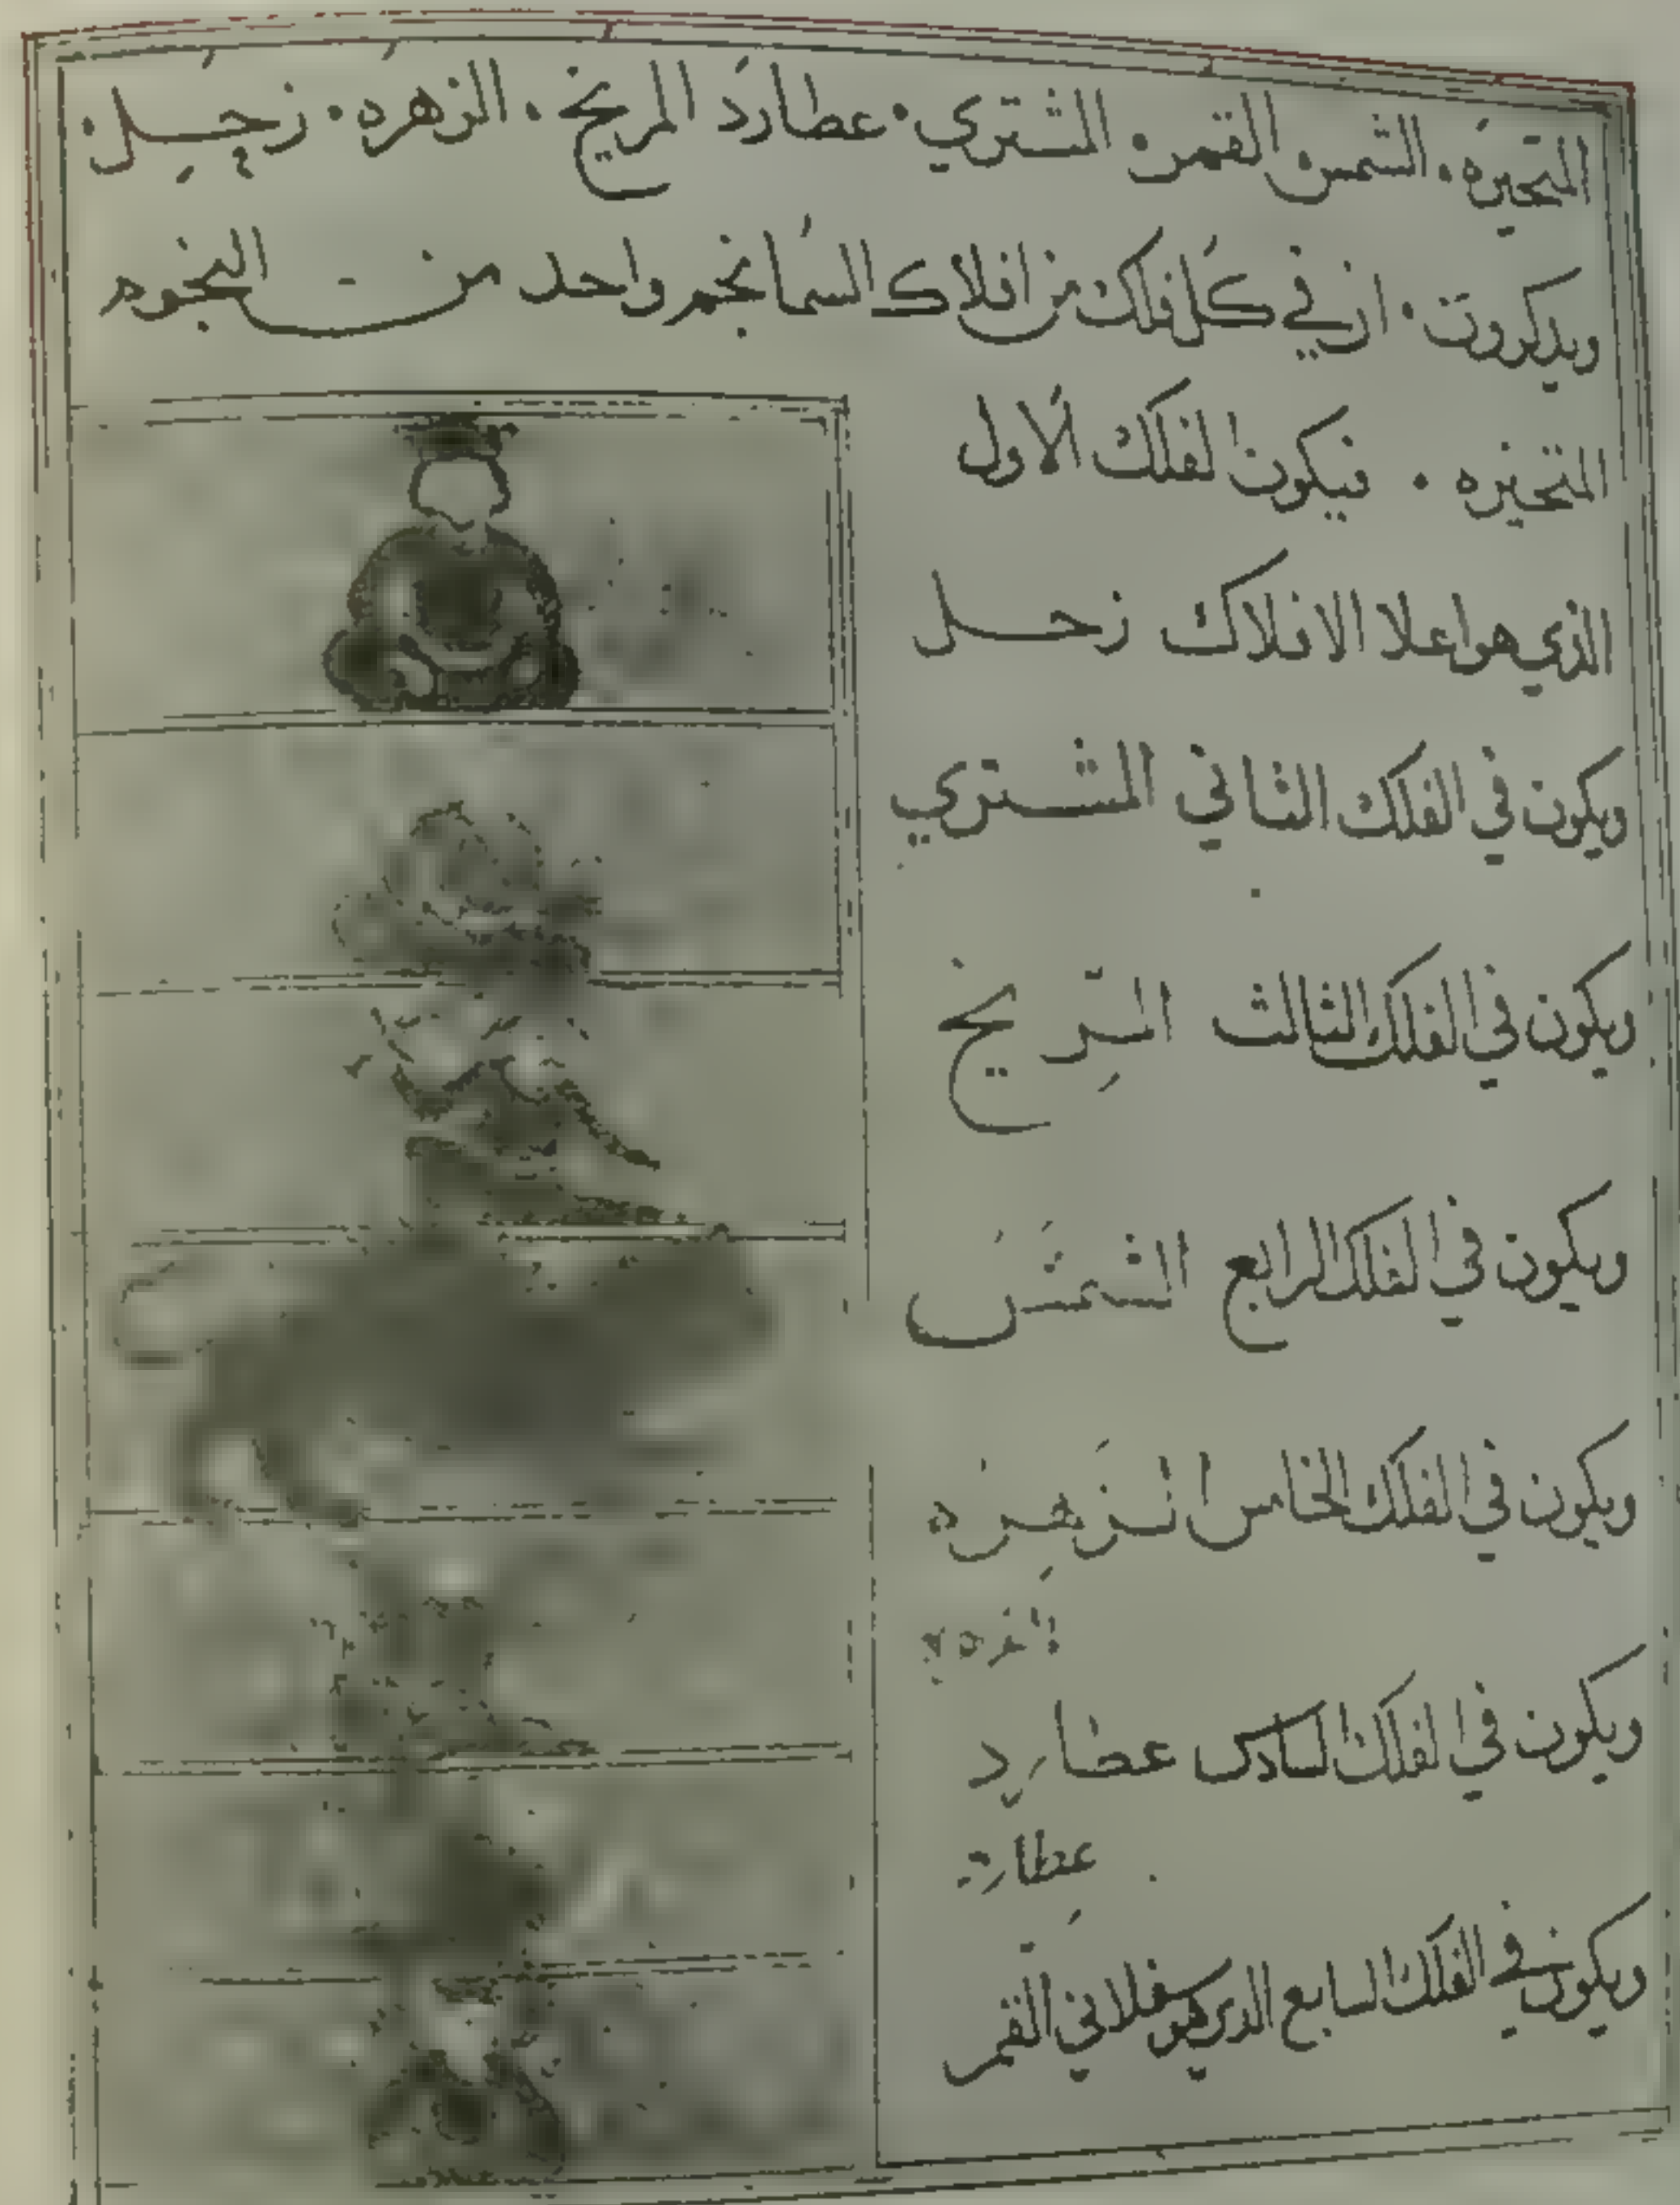 المتحيره . الشمس . القمر . المشتري . عطارد المريخ . الزهره . زحل .
ويدكروت . ان في كل فلك من افلاك السما نجم واحد من النجوم
المتحيزه . فيكون لفلك الاول
الذي هو اعلا الافلاك زحل
ويكون في الفلك الثاني المشتري
ويكون في الفلك الثالث المريخ
ويكون في الفلك الرابع الشمس
ويكون في الفلك الخامس الزهره
ويكون في الفلك السادس عطارد
عطارد
ويكون في الفلك السابع الدي هو القمر